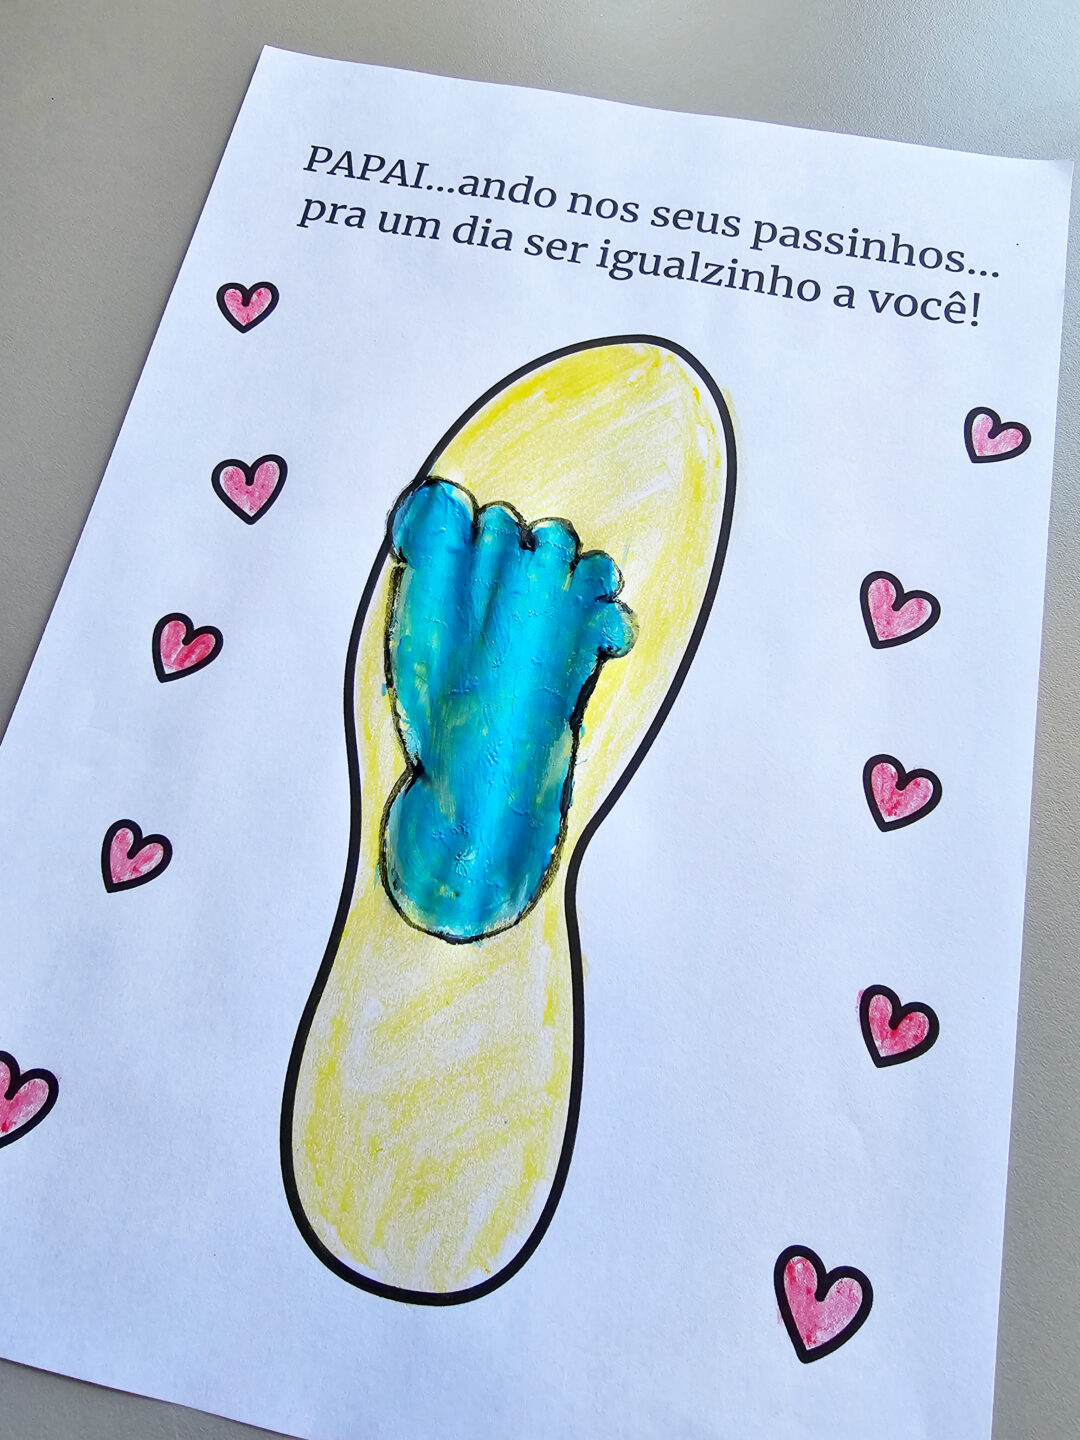 PAPAI...ando nos seus passinhos...
pra um dia ser igualzinho a você!